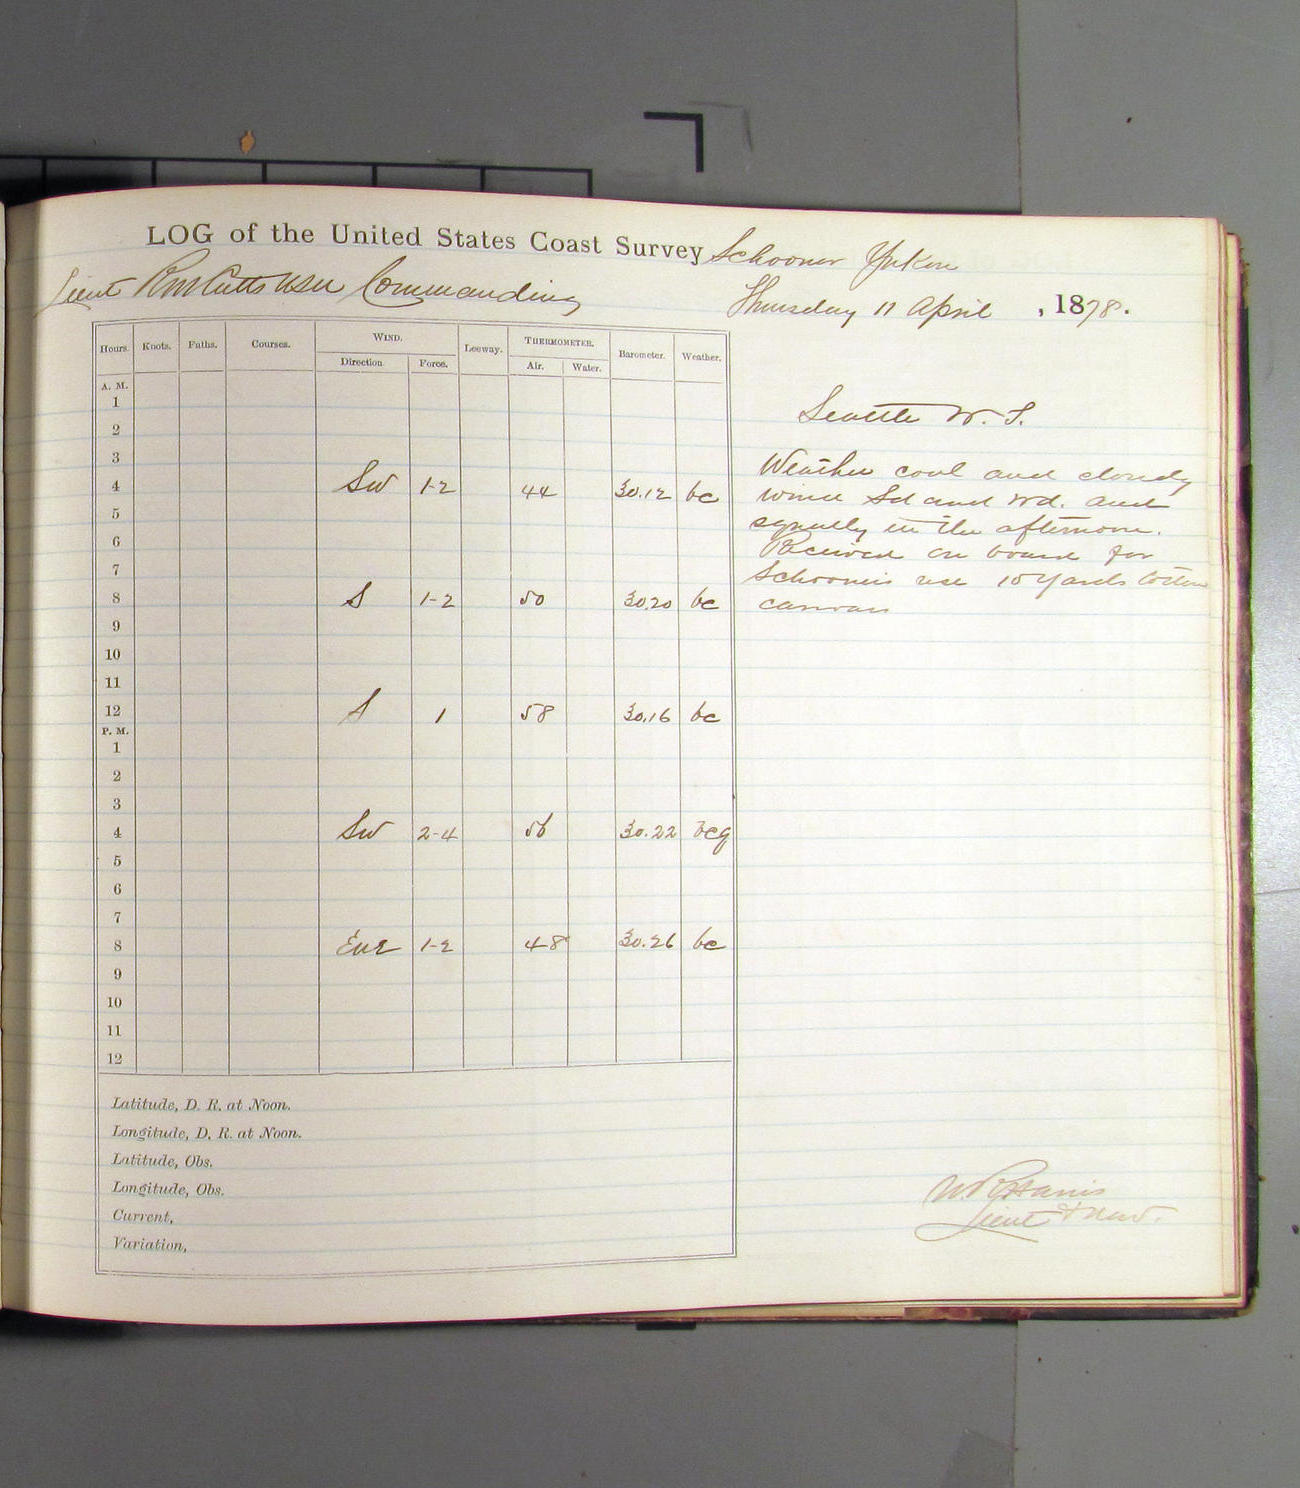 LOG of the United States Coast Survey Schooner Yukon
Lieut R M Cutts USN Commanding
Thursday 11 April , 1878.
Hours. Knots. Faths. Courses. WIND. Leeway. THERMOMETER. Barometer. Weather.
Direction. Force. Air. Water.
A. M.
1
2
3
4 SW 1-2 44 30.12 bc
5
6
7
8 S 1-2 50 30.20 bc
9
10
11
12 S 1 58 30.16 bc
P. M.
1
2
3
4 SW 2-4 56 30.22 bcq
5
6
7
8 ENE 1-2 48 30.26 bc
9
10
11
12
Latitude, D. R. at Noon.
Longitude, D. R. at Noon.
Latitude, Obs.
Longitude, Obs.
Current,
Variation,
Seattle W. T.
Weather cool and cloudy
wind Sd and Wd. and
squally in the afternoon.
Received on board for
Schooners use 10 yards cotton
canvas
Lieut &